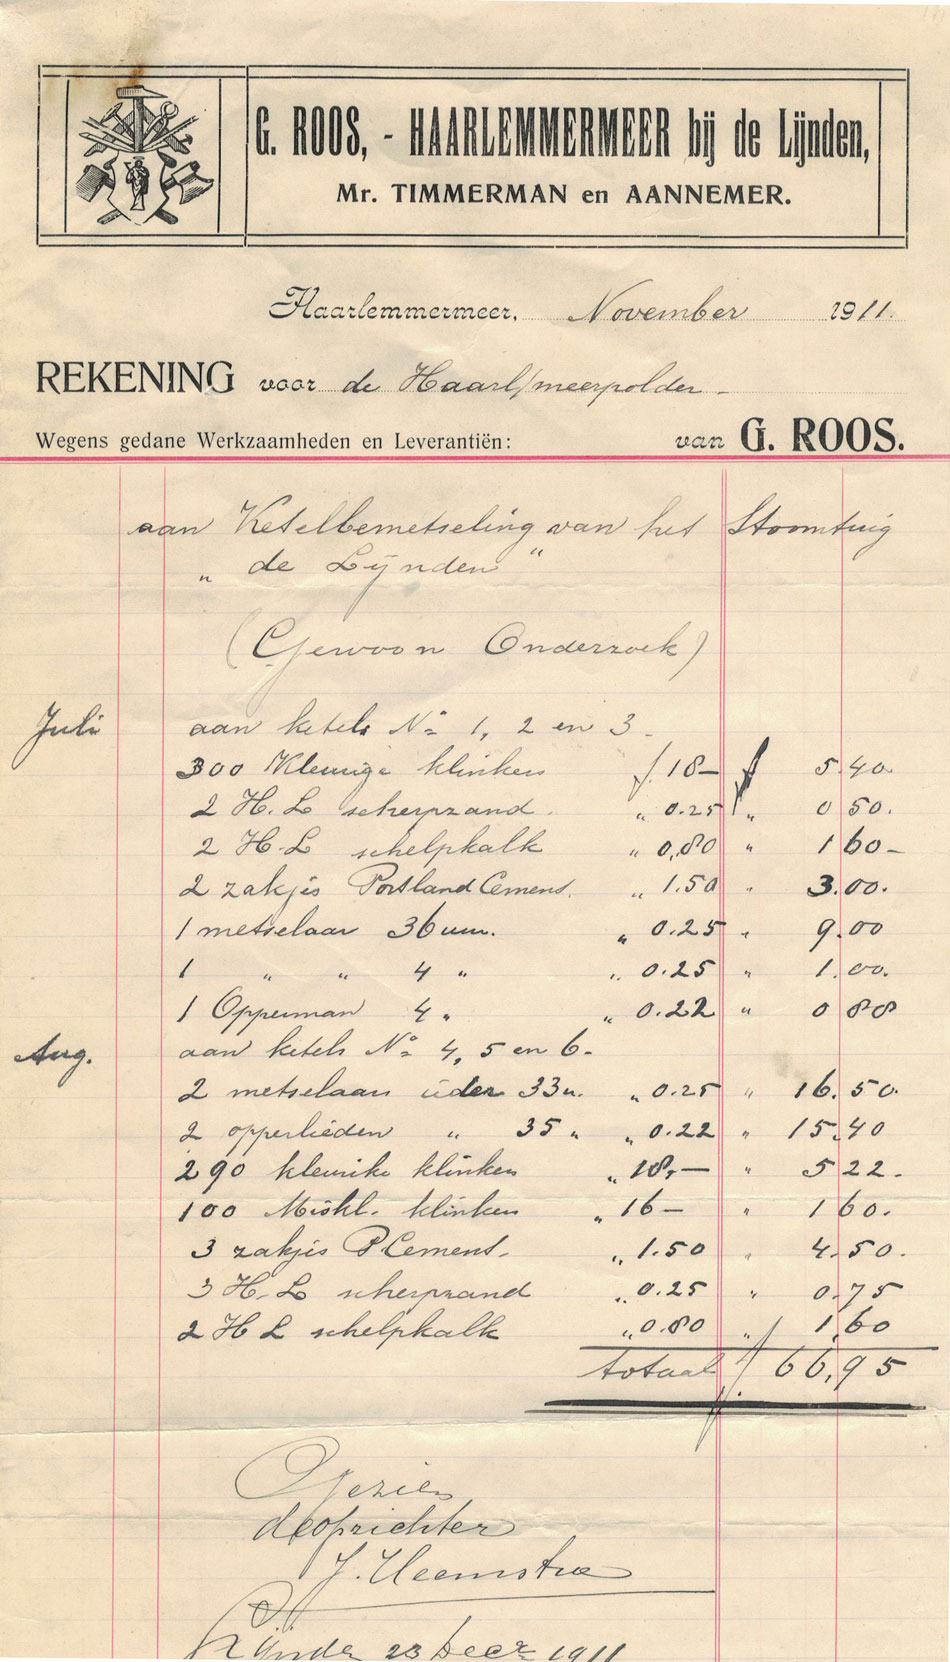 G. ROOS, - HAARLEMMERMEER bij de Lijnden,
Mr. TIMMERMAN en AANNEMER.
Haarlemmermeer, November 1911.
REKENING voor de Haarl/meerpolder -
Wegens gedane Werkzaamheden en Leverantiën: van G. ROOS.
aan Ketelbemetseling van het Stoomtuig
„ de Lijnden "
(Gewoon Onderzoek)
Juli aan ketels No 1, 2 en 3 -
300 Kleurige klinkers f. 18 – f 5.40
2 H.L scherpzand „ 0.25 „ 0 50.
2 H.L schelpkalk „ 0,80 „ 1 60 –
2 zakjes Portland Cement. „ 1.50 „ 3.00.
1 metselaar 36 uur. „ 0.25 „ 9.00
1 „ „ 4 „ „ 0.25 „ 1.00.
1 Opperman 4 „ „ 0.22 „ 0 88
Aug. aan ketels No 4, 5 en 6 -
2 metselaars ieder 33 u. „ 0.25 „ 16.50.
2 opperlieden „ 35 „ „ 0.22 „ 15.40
290 kleurike klinken „ 18,– „ 5 22.
100 klinken „ 16 – „ 1 60.
3 zakjes P Cement. „ 1.50 „ 4.50.
3 H.L scherpzand „ 0.25 „ 0.75
2 H L schelpkalk „ 0.80 „ 1,60
totaal f 66,95
Gezien
de opzichter
J. Heemstra
Lijnden 23 Decr 1911